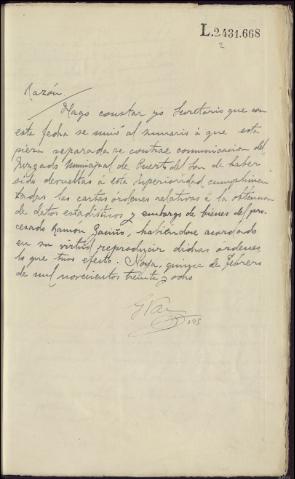 L.2431.668
2
Razón/
Hago constar yo Secretario que con
esta fecha se unió al sumario a que esta
pieza separada se contrae comunicación del
Juzgado Municipal de Puerto del Son de haber
sido devueltas a esta Superioridad, cumplimen
tadas las cartas órdenes relativas a la obtención
de datos estadísticos y embargo de bienes del pro
cesado Ramón, habiéndose acordado
en su virtud reproducir dichas órdenes
lo que tuvo efecto. Noya, quince de febrero
de mil novecientos treinta y ocho